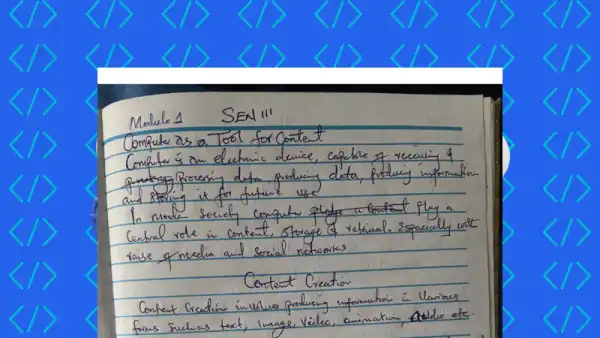 Module 1 SEN 111
Computer as a Tool for Content
Computer is an electronic device, capable of receiving &
processing data producing data, producing information
and storing it for future use
In moden Society computer a content play a
Central role in content, storage & retrival. Espacially with
raise of media and Social networks
Content Creation
Content Creation involves producing information in Various
forms Such as text, image, video, animation, Audio etc.